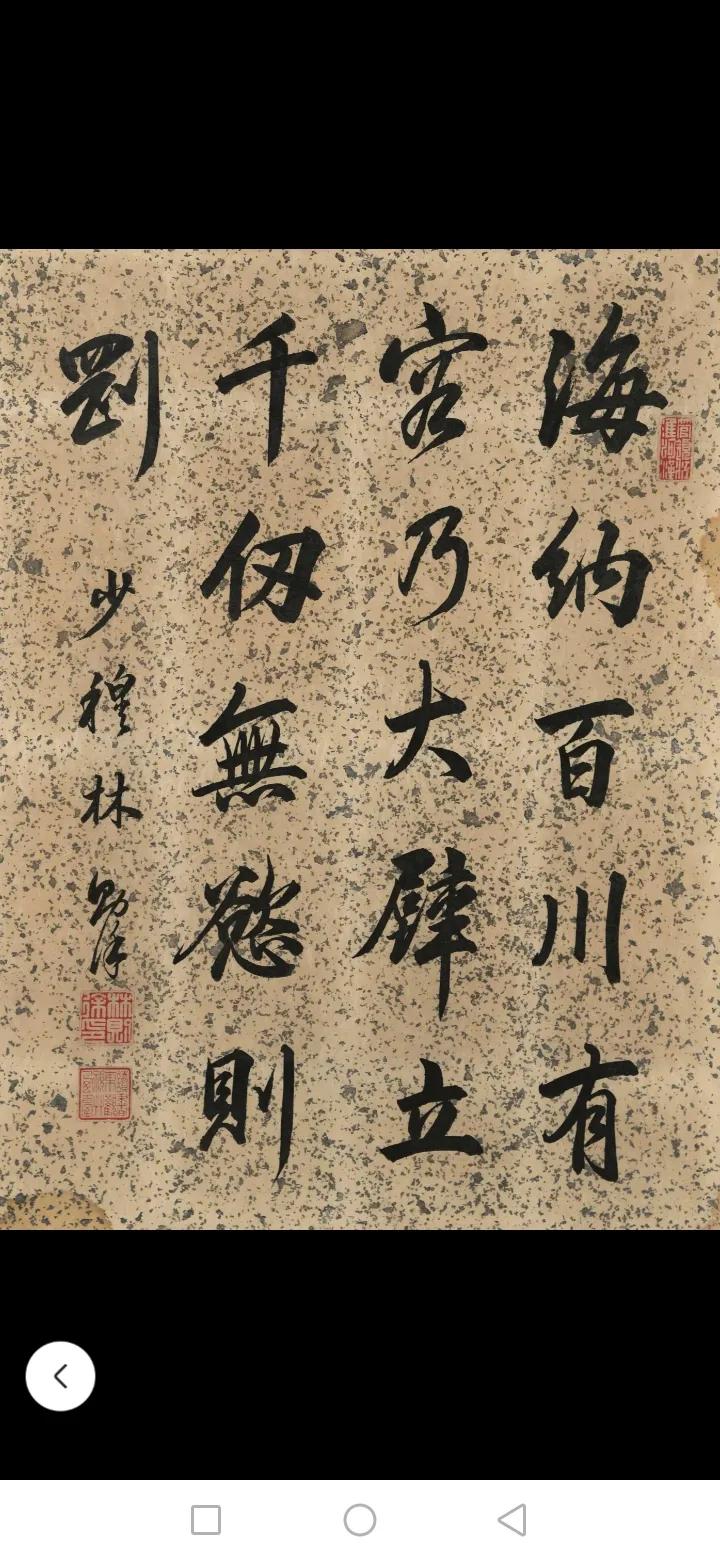 海納百川有
容乃大壁立
千仞無慾則
剛
少穆林則徐
林則徐印